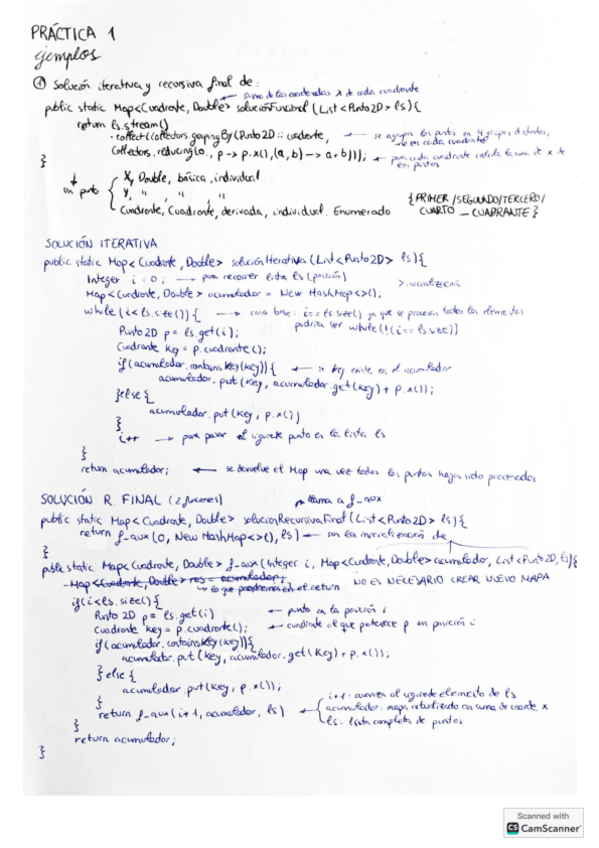 PRÁCTICA 1
ejemplos
① Solución iterativa y recursiva final de:
suma de las coordenadas x de cada cuadrante
public static Map<Cuadrante, Double> soluciónFuncional (List<Punto2D> ls){
return ls.stream()
.collect(Collectors.groupingBy(Punto2D::cuadrante, ← se agrupan los puntos en 4 grupos distintos,
Collectors.reducing(0., p -> p.x(), (a,b) -> a+b))); ← para cada cuadrante calcula la suma de x de
los puntos
}
un punto { X, Double, básica, individual
Y, " , " , "
Cuadrante, Cuadrante, derivada, individual. Enumerado {PRIMER/SEGUNDO/TERCERO/
CUARTO _ CUADRANTE}
SOLUCIÓN ITERATIVA
public static Map<Cuadrante, Double> soluciónIterativa (List<Punto2D> ls){
Integer i = 0; → para recorrer lista ls (posición)
Map<Cuadrante, Double> acumulador = New HashMap<>(); > inicialización
while(i<ls.size()){ → caso base: i == ls.size() ya que se procesan todos los elementos
podría ser while(!(i==ls.size))
Punto2D p = ls.get(i);
Cuadrante Key = p.cuadrante();
if(acumulador.containsKey(key)){ ← si key existe en el acumulador
acumulador.put(key, acumulador.get(key) + p.x());
}else{
acumulador.put(key, p.x())
}
i++ → para pasar al siguiente punto en la lista ls
}
return acumulador; ← se devuelve el Map una vez todos los puntos hayan sido procesados
SOLUCIÓN R. FINAL (2 funciones)
llama a f_aux
public static Map<Cuadrante, Double> solucionRecursivaFinal (List<Punto2D> ls){
return f_aux(0, New HashMap<>(), ls) ← son la inicialización de
}
public static Map<Cuadrante, Double> f_aux(Integer i, Map<Cuadrante, Double> acumulador, List<Punto2D> ls){
Map<Cuadrante, Double> res = acumulador;
lo que en el return NO ES NECESARIO CREAR NUEVO MAPA
if(i<ls.size(){
Punto 2D p = ls.get(i) ← punto en la posición i
Cuadrante key = p.cuadrante(); ← cuadrante al que pertenece p en posición i
if(acumulador.containsKey(key)){
acumulador.put(key, acumulador.get(key) + p.x());
}else{
acumulador.put(key, p.x());
}
return f_aux(i+1, acumulador, ls) ← { i+1: avanza al siguiente elemento de ls
acumulador: mapa actualizado con suma de coorde x
ls: lista completa de puntos
}
return acumulador;
}
Scanned with
CS CamScanner